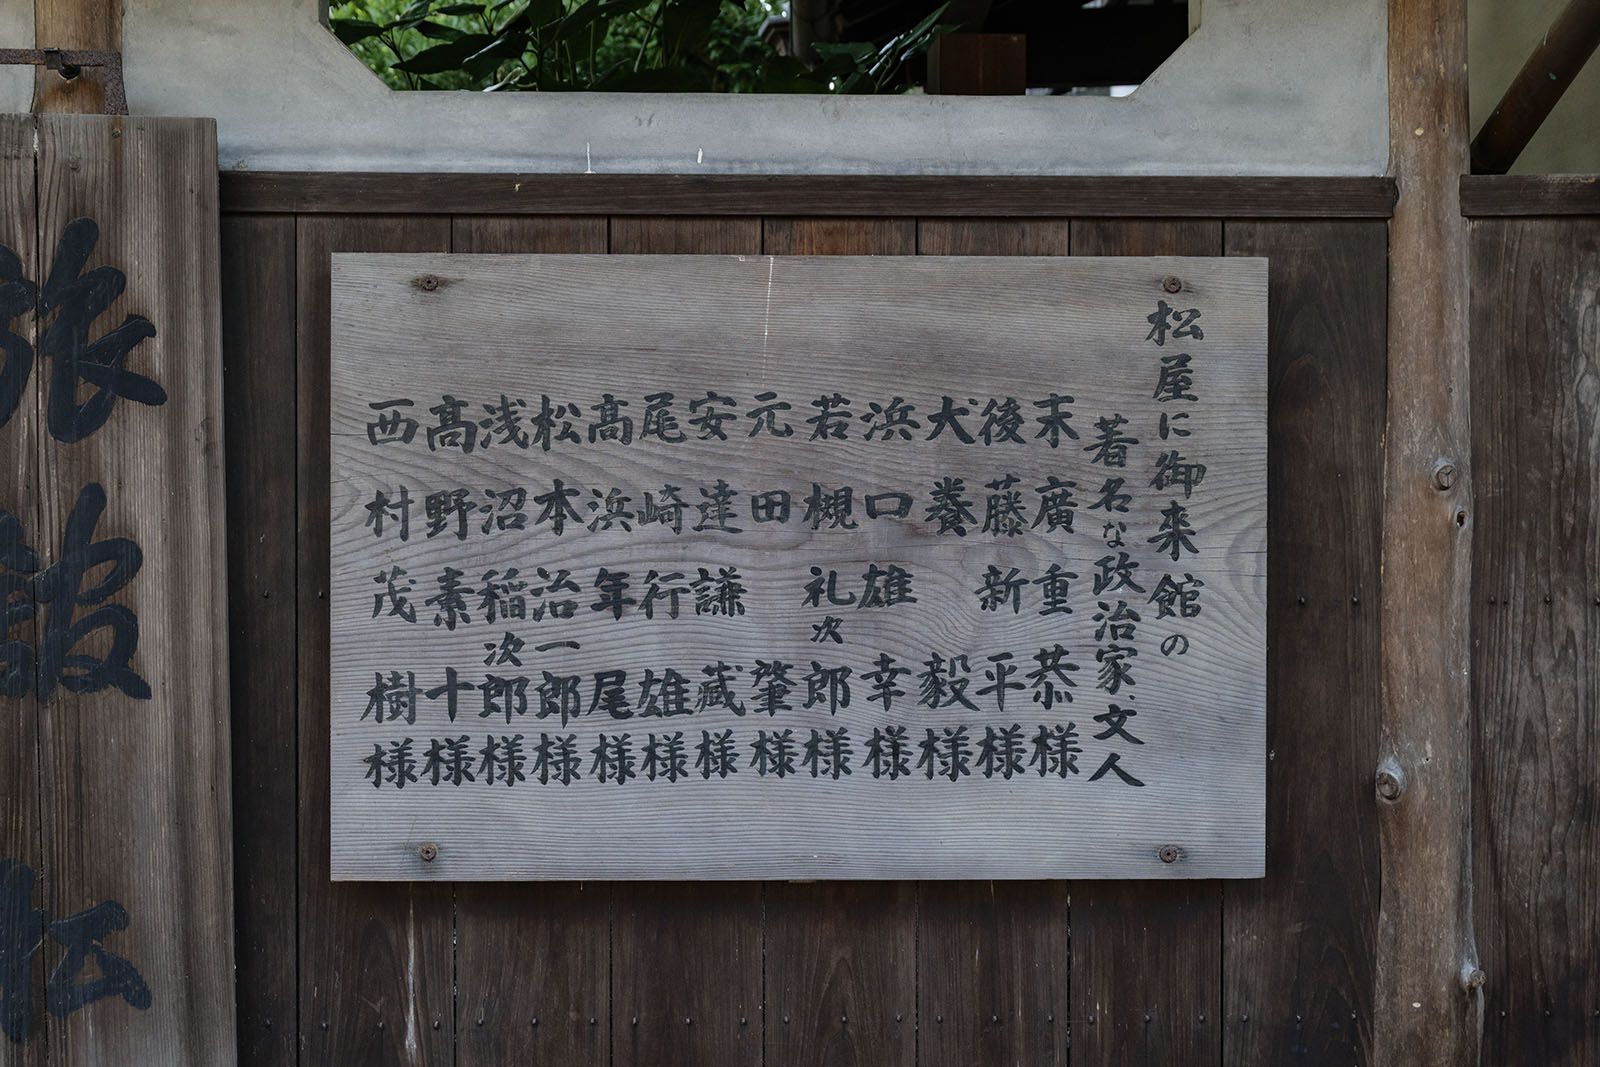 松屋に御来館の
著名な政治家、文人
末廣重恭様
後藤新平様
犬養毅様
浜口雄幸様
若槻礼次郎様
元田肇様
安達謙藏様
尾崎行雄様
高浜年尾様
松本治一郎様
浅沼稲次郎様
高野素十様
西村茂樹様
旅館松